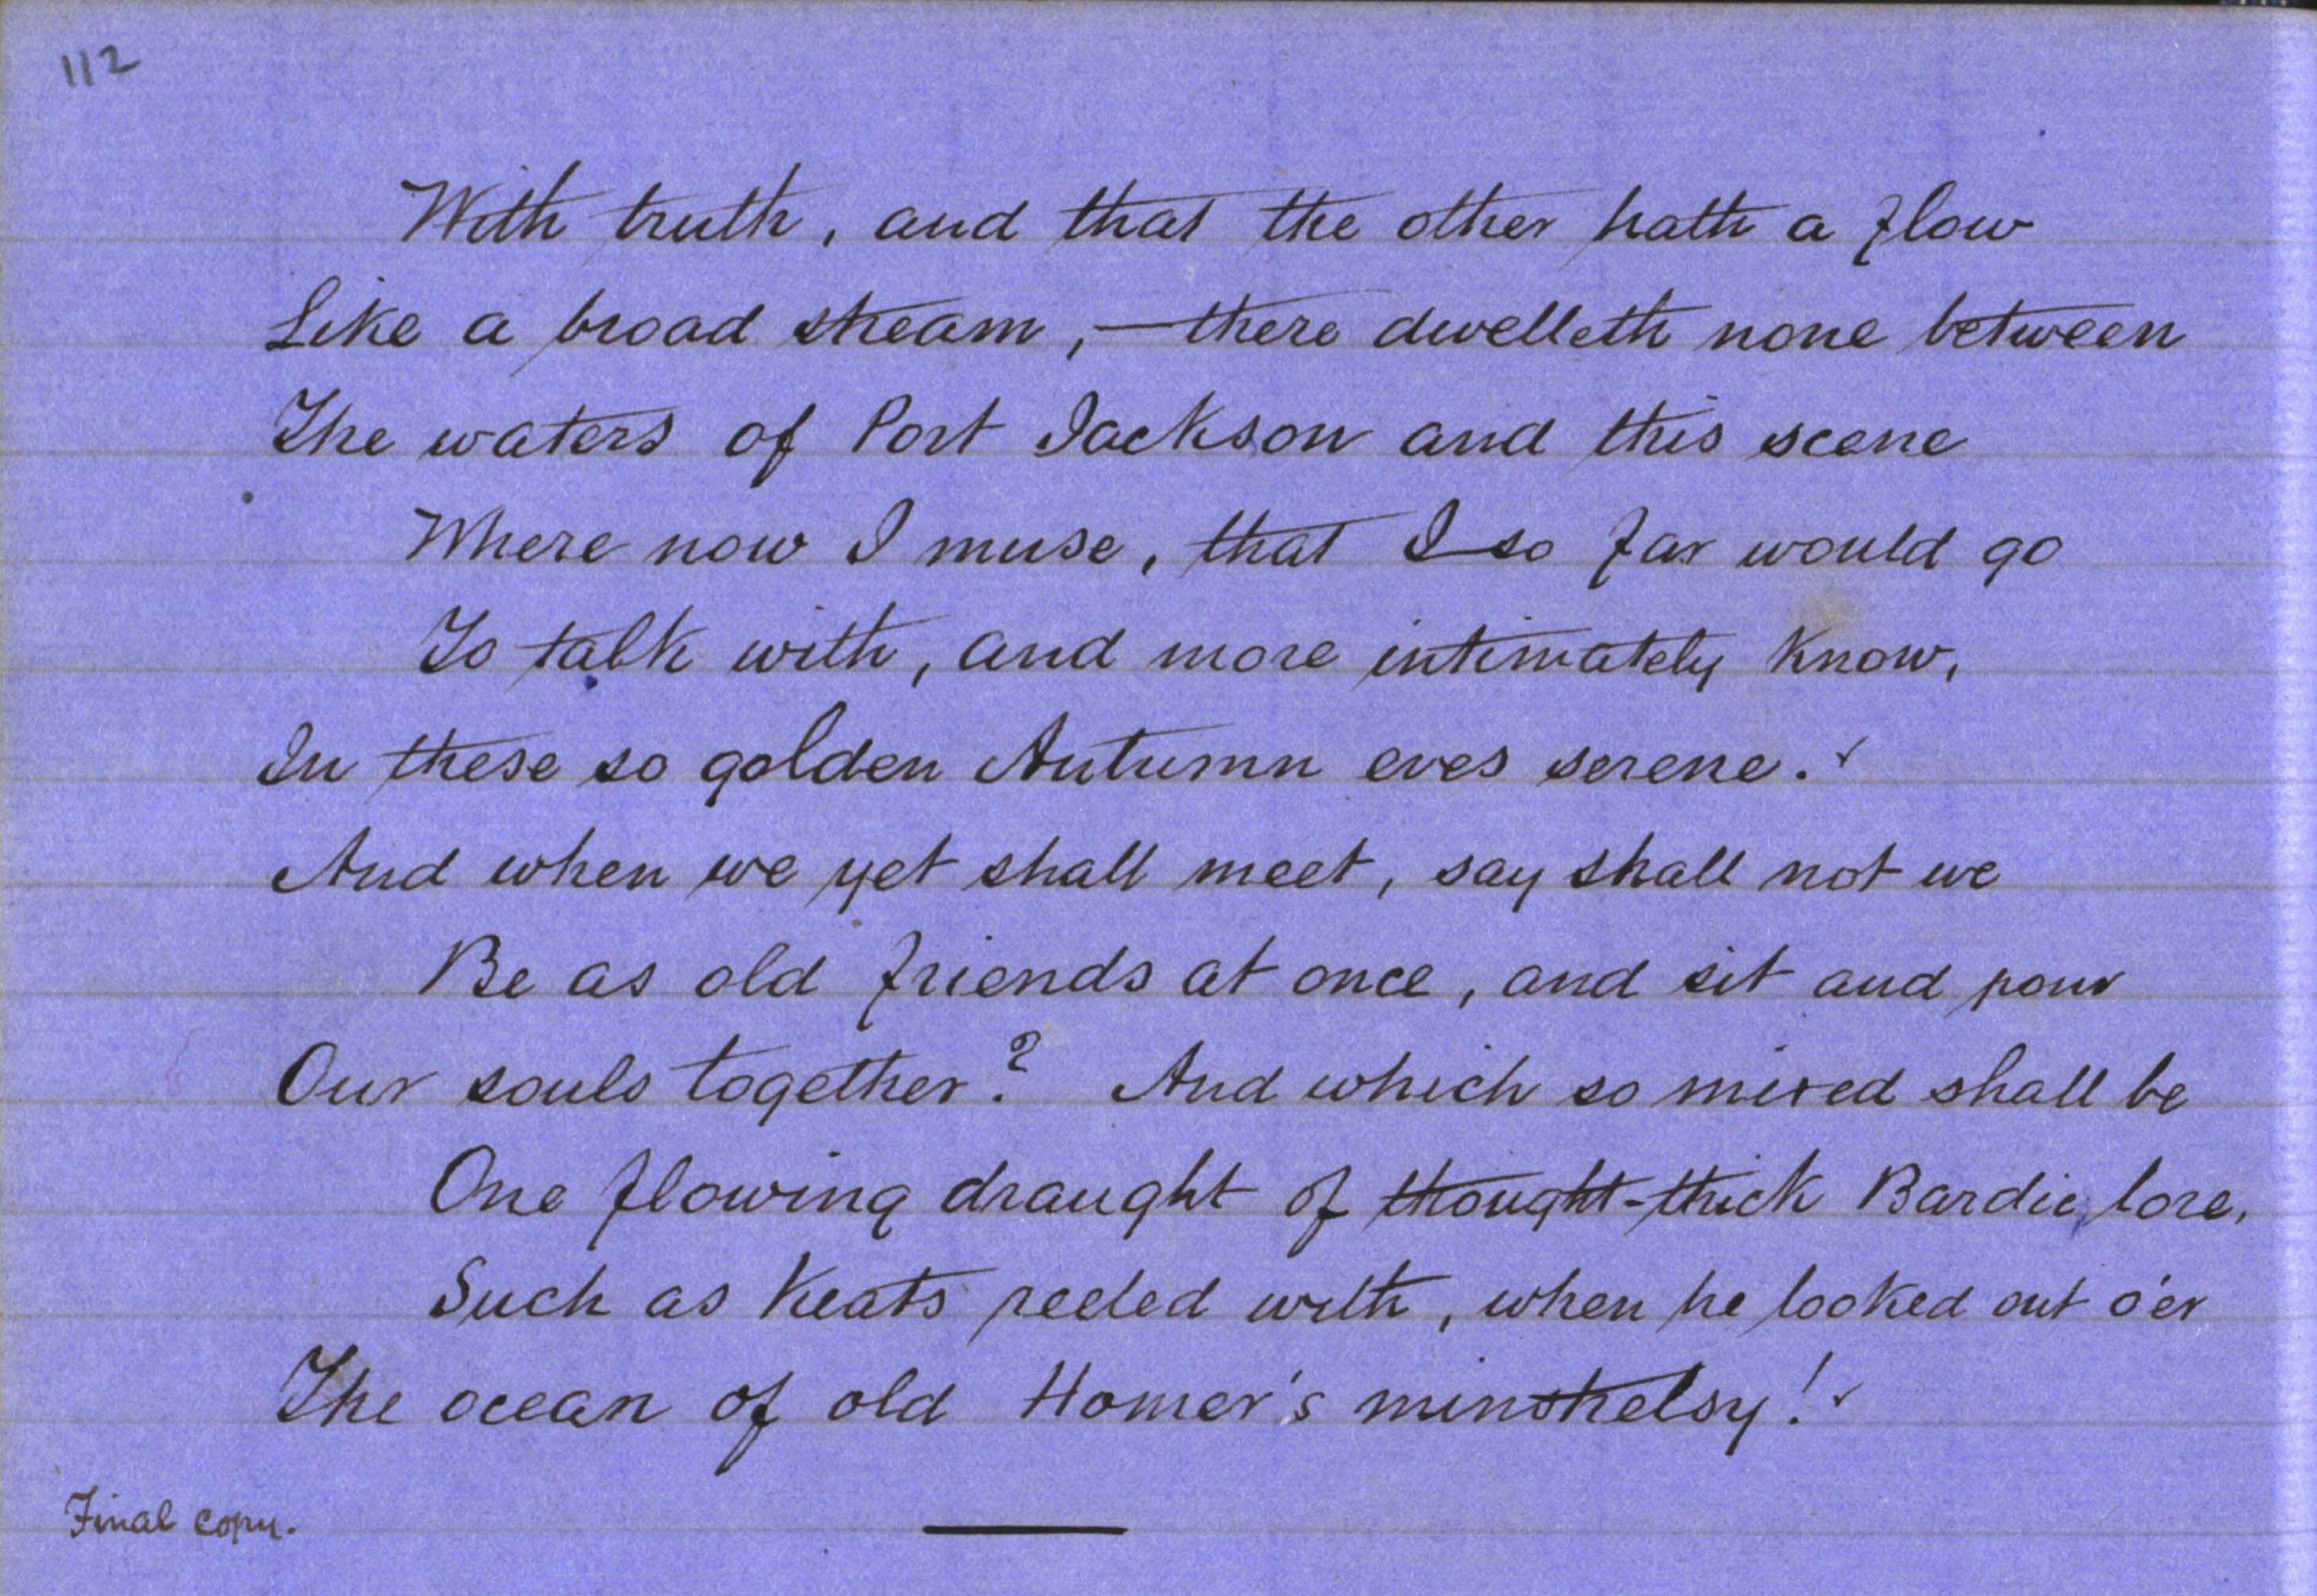 112
With truth, and that the other hath a flow
Like a broad stream,—there dwelleth none between
The waters of Port Jackson and this scene
Where now I muse, that I so far would go
To talk with, and more intimately know,
In these so golden Autumn eves serene.
And when we yet shall meet, say shall not we
Be as old friends at once, and sit and pour
Our souls together? And which so mixed shall be
One flowing draught of thought-thick Bardic lore,
Such as Keats reeled with, when he looked out o'er
The ocean of old Homer's minstrelsy!
Final copy.